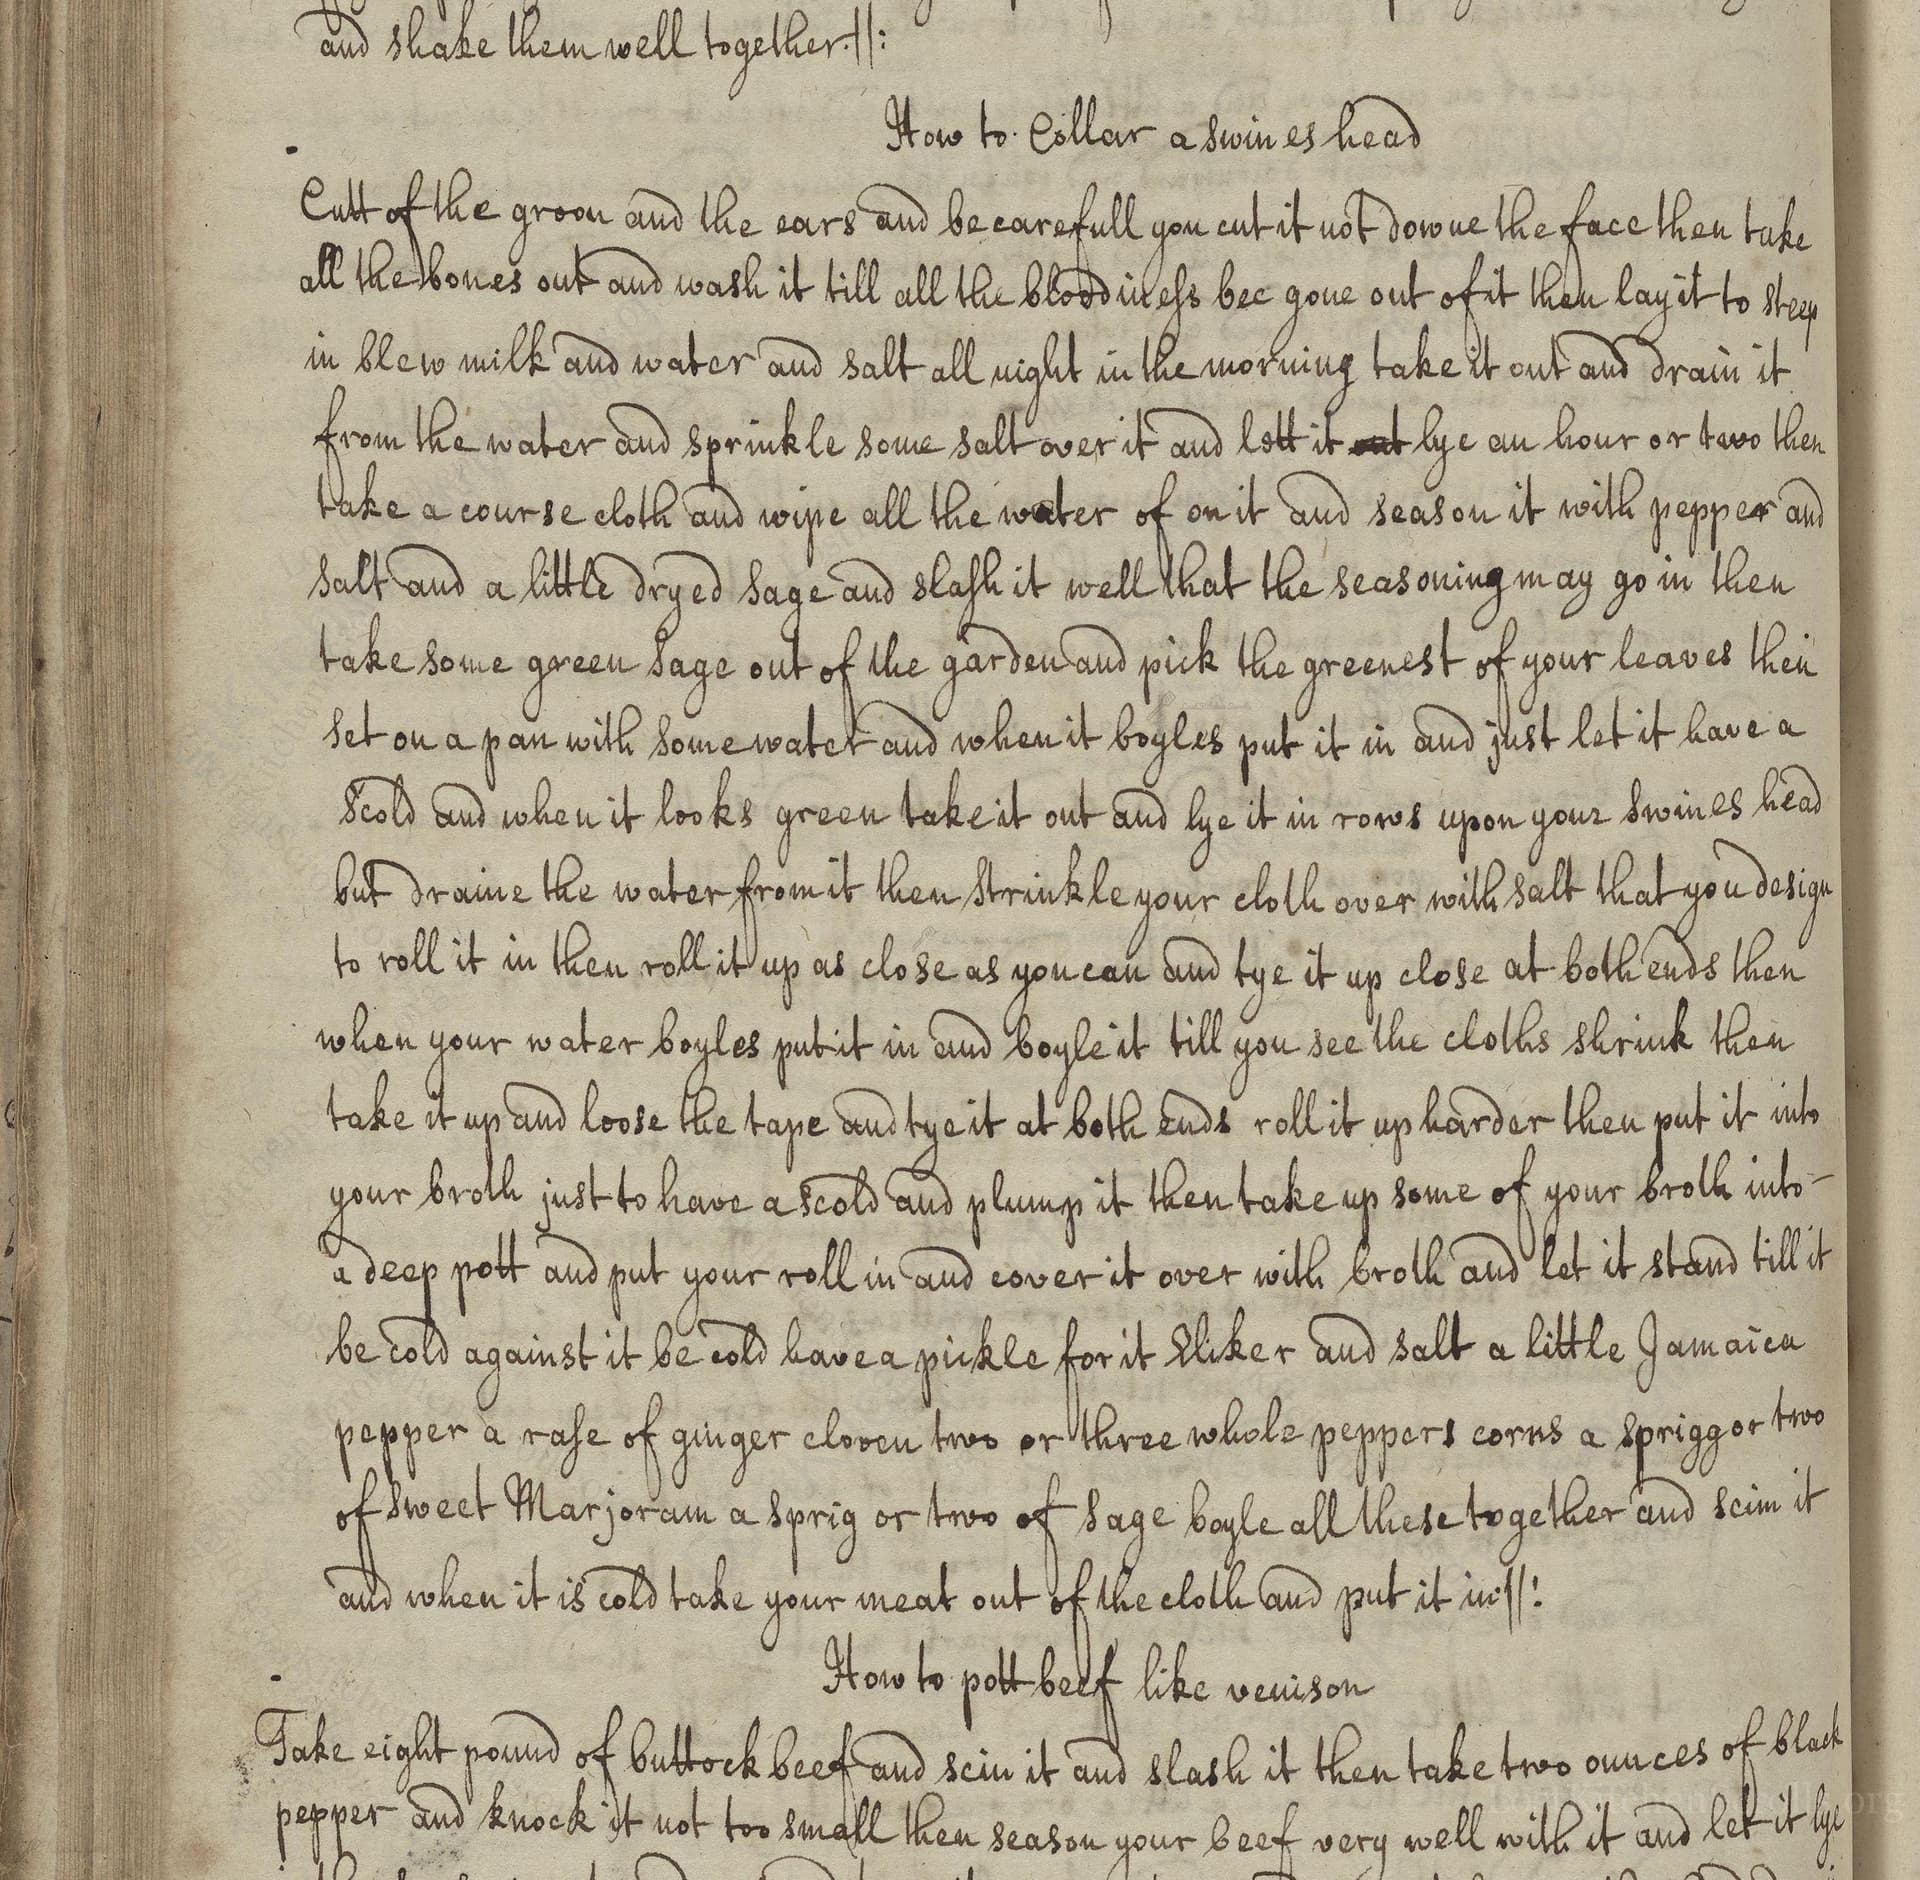 and shake them well together.||:
How to Collar a swines head
Cutt of the groon and the ears and be carefull you cut it not downe the face then take
all the bones out and wash it till all the bloodiness bee gone out of it then lay it to steep
in blew milk and water and salt all night in the morning take it out and drain it
from the water and sprinkle some salt over it and lett it out lye an hour or two then
take a course cloth and wipe all the water of on it and season it with pepper and
salt and a little dryed sage and slash it well that the seasoning may go in then
take some green sage out of the garden and pick the greenest of your leaves then
set on a pan with some water and when it boyles put it in and just let it have a
scold and when it looks green take it out and lye it in rows upon your swines head
but draine the water from it then strinkle your cloth over with salt that you design
to roll it in then roll it up as close as you can and tye it up close at both ends then
when your water boyles put it in and boyle it till you see the cloths shrink then
take it up and loose the tape and tye it at both ends roll it up harder then put it into
your broth just to have a scold and plump it then take up some of your broth into-
a deep pott and put your roll in and cover it over with broth and let it stand till it
be cold against it be cold have a pickle for it Eliker and salt a little Jamaica
pepper a rase of ginger cloven two or three whole peppers corns a sprigg or two
of sweet Marjoram a sprig or two of sage boyle all these together and scim it
and when it is cold take your meat out of the cloth and put it in||:
How to pott beef like venison
Take eight pound of buttock beef and scin it and slash it then take two ounces of black
pepper and knock it not too small then season your beef very well with it and let it lye